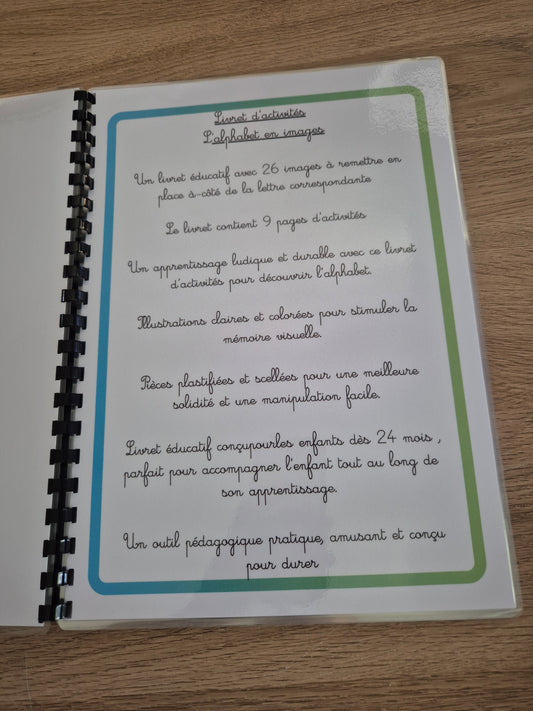 Livret d'activités
L'alphabet en images
Un livret éducatif avec 26 images à remettre en
place à-côté de la lettre correspondante
Le livret contient 9 pages d'activités
Un apprentissage ludique et durable avec ce livret
d'activités pour découvrir l'alphabet.
Illustrations claires et colorées pour stimuler la
mémoire visuelle.
Pièces plastifiées et scellées pour une meilleure
solidité et une manipulation facile.
Livret éducatif conçupourles enfants dès 24 mois ,
parfait pour accompagner l'enfant tout au long de
son apprentissage.
Un outil pédagogique pratique, amusant et conçu
pour durer